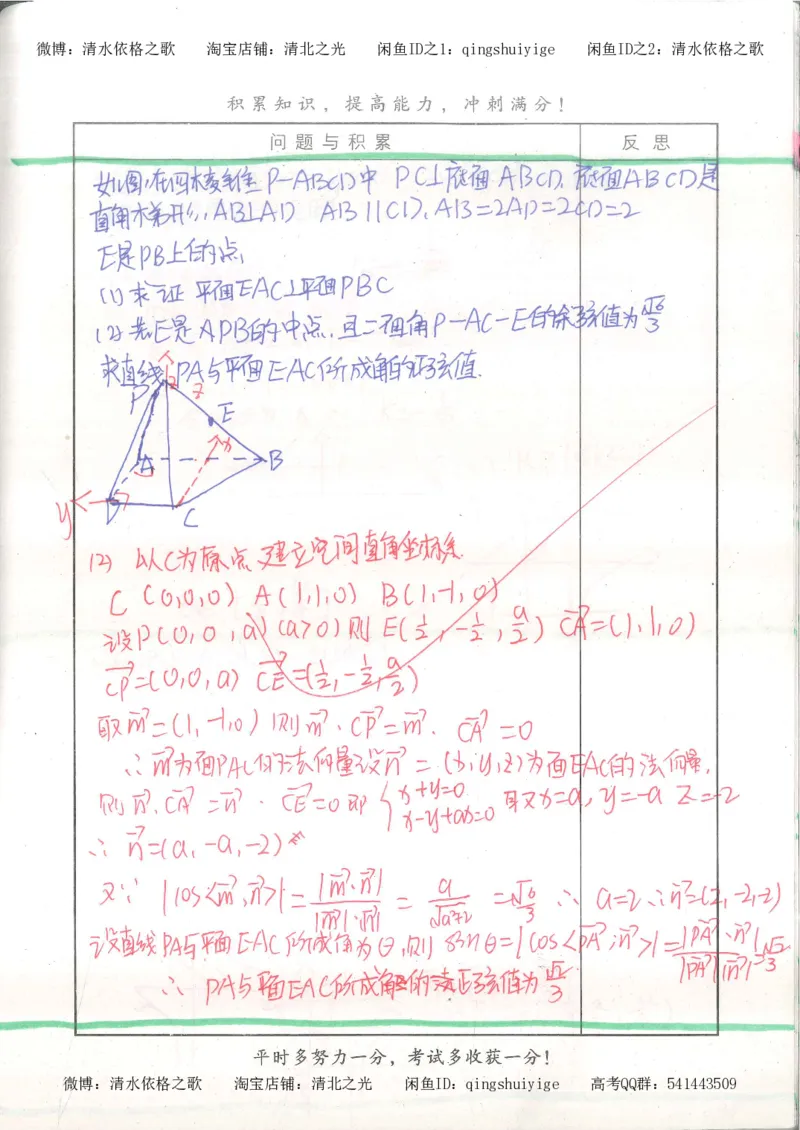 微博：清水依格之歌 淘宝店铺：清北之光 闲鱼ID之1：qingshuiyige 闲鱼ID之2：清水依格之歌
积累知识，提高能力，冲刺满分！
问题与积累 反思
如图,在四棱锥 P-ABCD中 PC⊥底面ABCD, 底面ABCD是
直角梯形, AB⊥AD AB∥CD, AB=2AD=2CD=2
E是PB上的点,
(1) 求证 平面EAC⊥平面PBC
(2) 若E是APB的中点, 且二面角P-AC-E的余弦值为√6/3
求直线PA与平面EAC所成角的正弦值.
P z E
x
A B
y D C
(2) 以C为原点 建立空间直角坐标系
C(0,0,0) A(1,1,0) B(1,-1,0)
设P(0,0,a) (a>0) 则E(1/2,-1/2,a/2) CA→=(1,1,0)
CP→=(0,0,a) CE→=(1/2,-1/2,a/2)
取m→=(1,-1,0) 则m→·CP→=m→·CA→=0
∴m→为面PAC的法向量 设n→=(x,y,z)为面EAC的法向量,
则n→·CA→=n→·CE→=0 即{x+y=0 x-y+az=0 取x=a, y=-a z=-2
∴n→=(a,-a,-2)
又∵|cos<m→,n→>|=|m→·n→|/|m→|·|n→|=a/√a²+2=√6/3 ∴a=2 ∴n→=(2,-2,-2)
设直线PA与平面EAC所成角为θ,则 sinθ=|cos<PA→,n→>|=|PA→·n→|/|PA→||n→|=√2/3
∴PA与平面EAC所成角的正弦值为√2/3
平时多努力一分，考试多收获一分！
微博：清水依格之歌 淘宝店铺：清北之光 闲鱼ID：qingshuiyige 高考QQ群：541443509